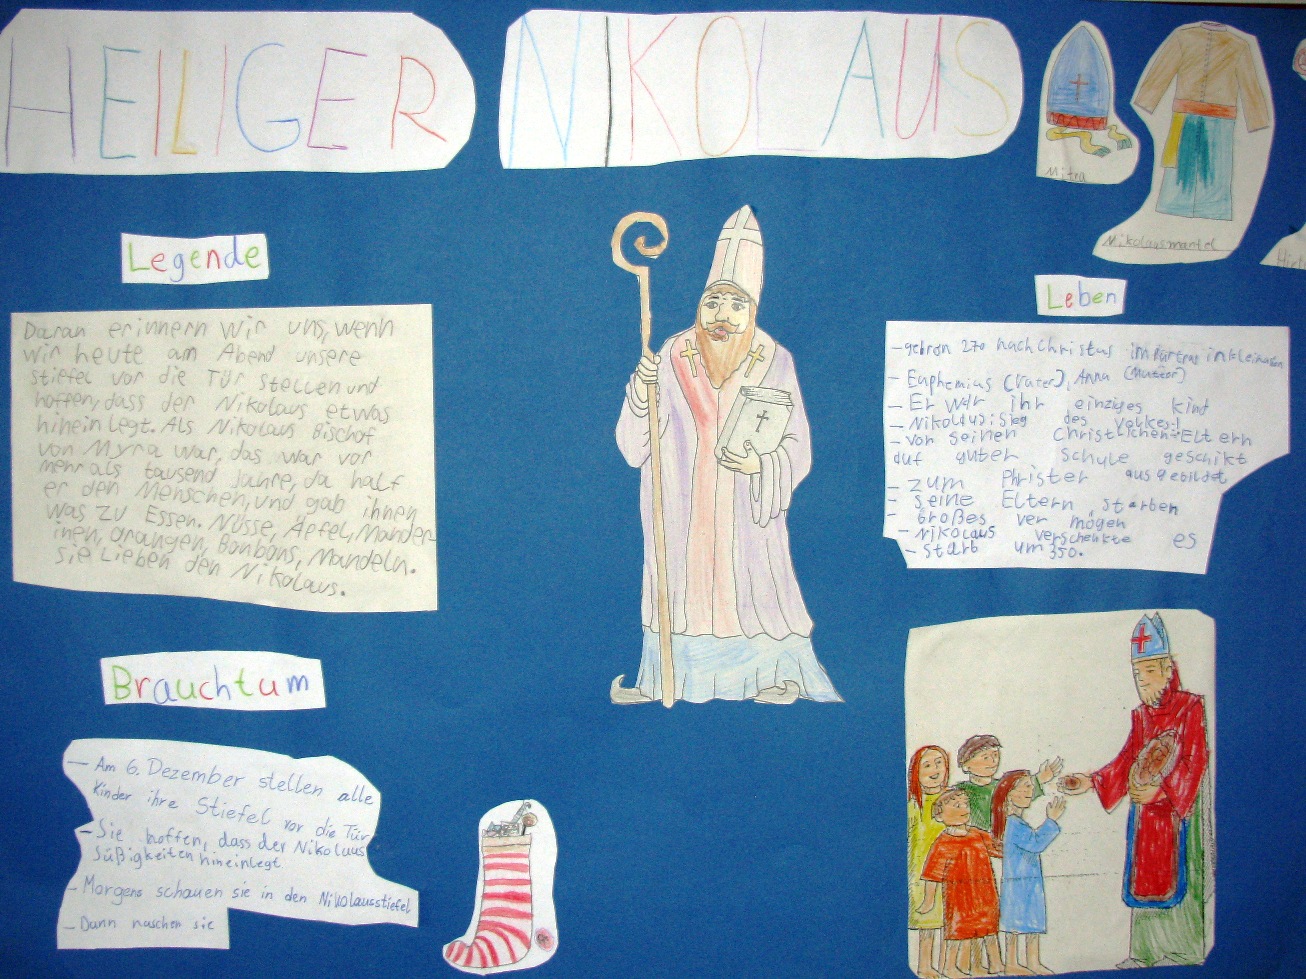 HEILIGER NIKOLAUS
Mitra
Nikolausmantel
Hirt
Legende
Daran erinnern wir uns, wenn
wir heute am Abend unsere
stiefel vor die Tür stellen und
hoffen, dass der Nikolaus etwas
hineinlegt. Als Nikolaus Bischof
von Myra war, das war vor
mehr als tausend Jahre, da half
er den Menschen, und gab ihnen
was zu Essen. Nüsse, Äpfel, Mander-
inen, orangen, Bonbons, Mandeln.
sie Lieben den Nikolaus.
Leben
- gebron 270 nach Christus im Partras in kleinasien
- Euphemius (Vater), Anna (Mutter)
- Er war ihr einziges kind
- Nikolaus: Sieg des Volkes!
- von seinen Christlichen Eltern
auf guter schule geschikt
- zum Phrister ausgebildet
- seine Eltern starben
- Großes ver mögen
- Nikolaus verschenkte es
- starb um 350.
Brauchtum
- Am 6. Dezember stellen alle
Kinder ihre Stiefel vor die Tür
- Sie hoffen, dass der Nikolaus
Süßigkeiten hineinlegt
- Morgens schauen sie in den Nikolausstiefel
- Dann naschen sie